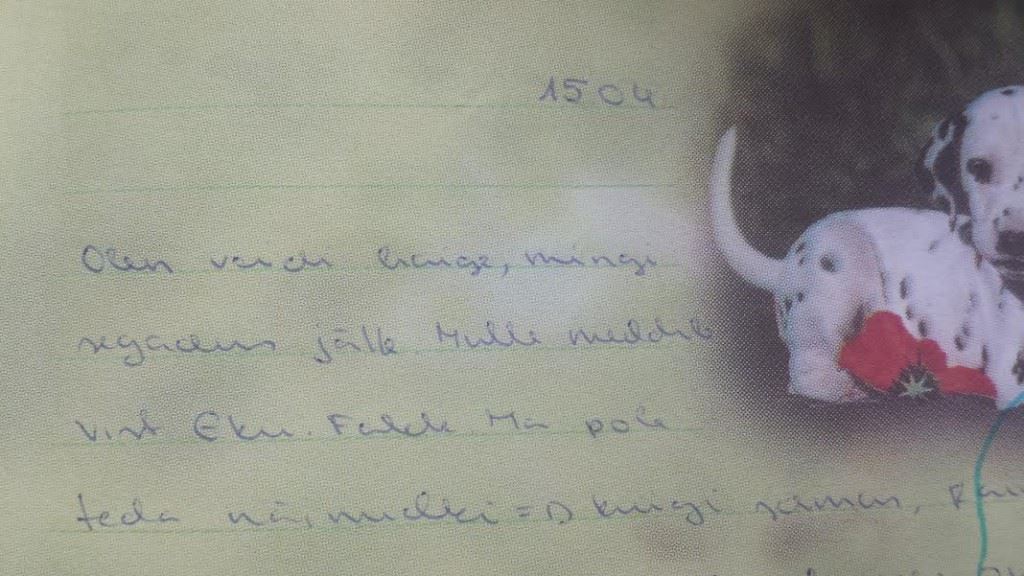 1504
Olen veidi haige, mingi
segadus jälle Mulle meeldib
vist Eku. Fakk Ma pole
teda näinudki =D kuigi samas, Rai